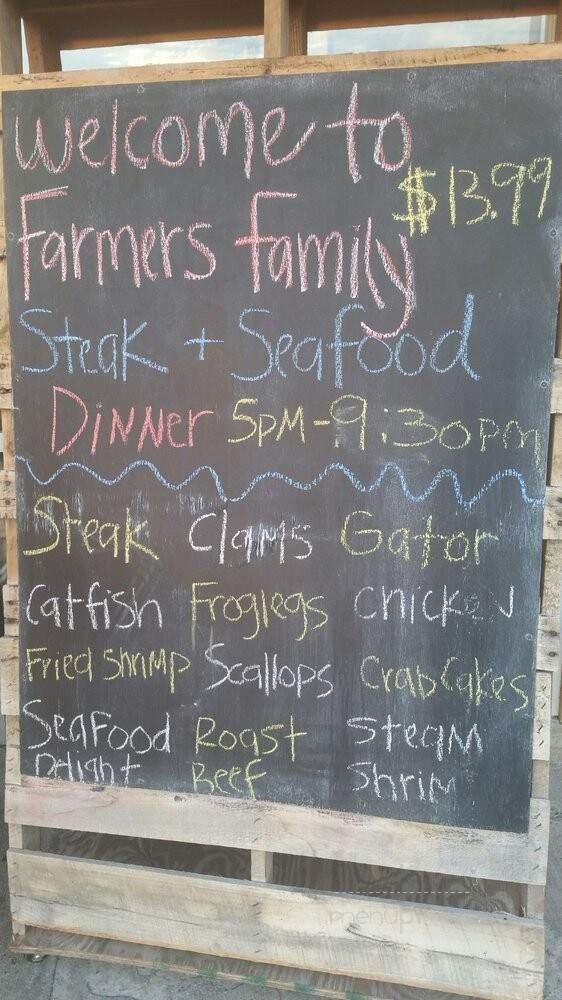 Welcome to
$13.99
Farmers Family
Steak + Seafood
Dinner 5PM-9:30pm
Steak Clams Gator
Catfish Froglegs Chicken
Fried Shrimp Scallops Crab Cakes
Seafood Roast Steam
Delight Beef Shrim